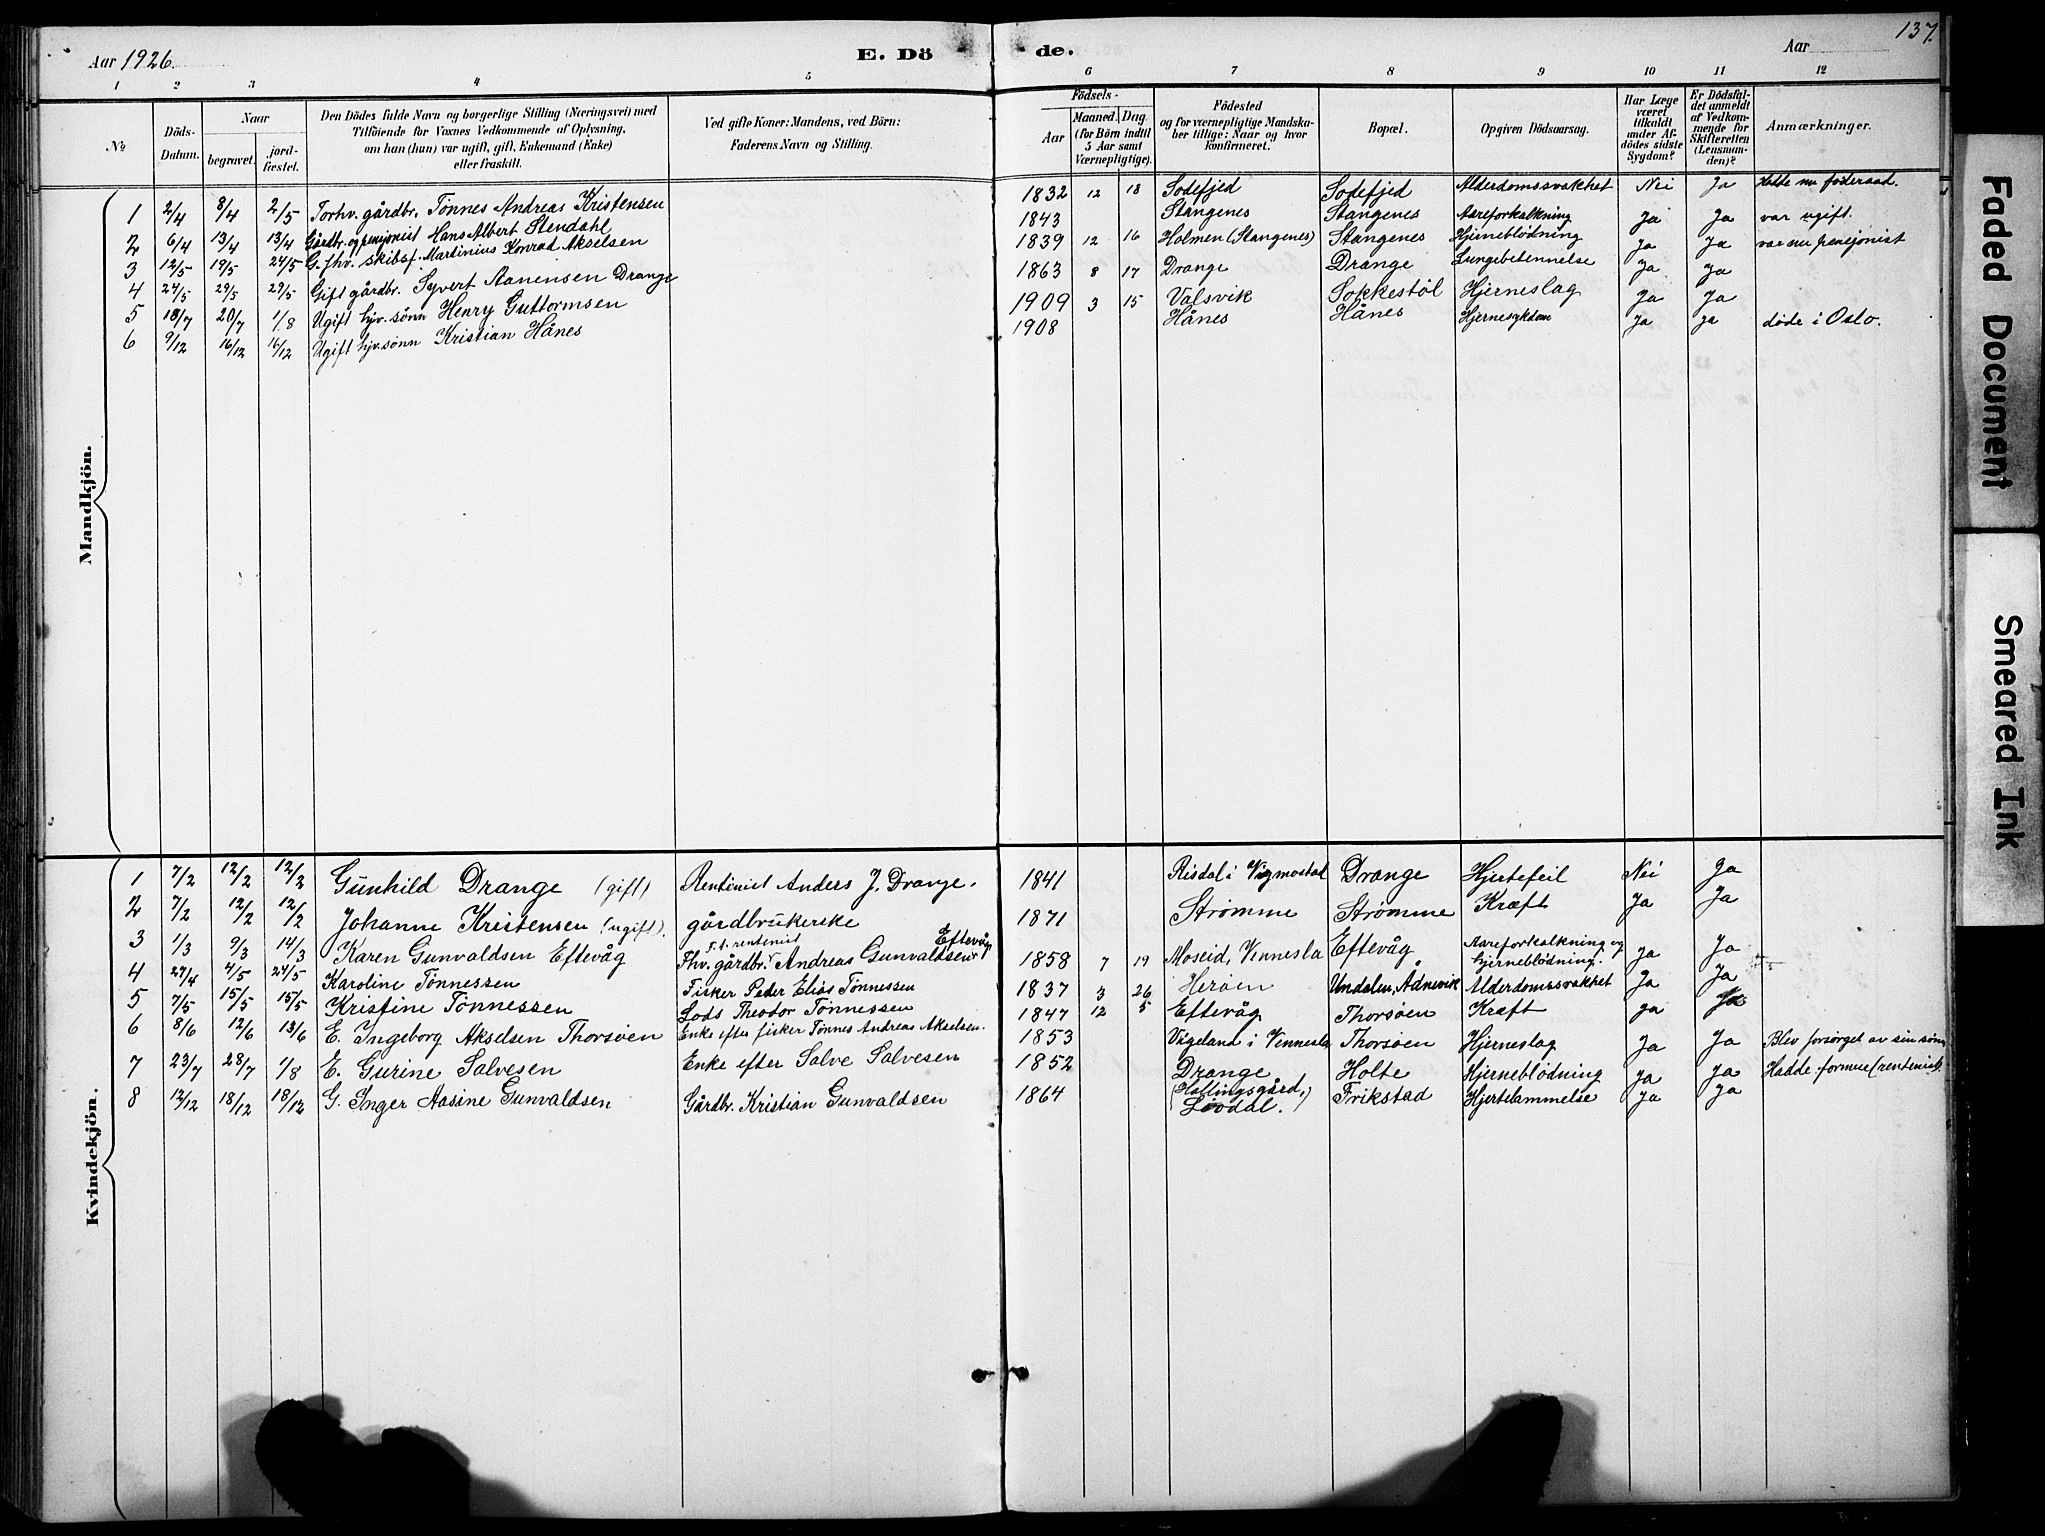 Aar 1926.
E. Dö
de.
Aar
137.
1 2 3 4 5 6 7 8 9 10 11 12
№
Döds-Datum.
Naar
begravet.
jord-fæstet.
Den Dödes fulde Navn og borgerlige Stilling (Næringsvei) med
Tilföiende for Voxnes Vedkommende af Oplysning,
om han (hun) var ugift, gift, Enkemand (Enke)
eller fraskilt.
Ved gifte Koner: Mandens, ved Börn:
Faderens Navn og Stilling.
Födsels-
Aar
Maaned. Dag.
(for Börn indtil
5 Aar samt
Værnepligtige).
Födested
og for værnepligtige Mandska-
ber tillige: Naar og hvor
konfirmeret.
Bopæl.
Opgiven Dödsaarsag.
Har Læge
været
tilkaldt
under Af-
dödes sidste
Sygdom?
Er Dödsfal-
det anmeldt
af Vedkom-
mende for
Skifteretten
(Lensman-
den)?
Anmærkninger.
Mandkjön.
1 2/4 8/4 2/5 Forhv. gårdbr. Tønnes Andreas Kristensen 1832 12 18 Sodefjed Sodefjed Alderdomssvakhet Nei Ja Hadde nu føderaad.
2 6/4 13/4 13/4 Gårdbr. og pensjonist Hans Albert Stendahl 1843 Stangenes Stangenes Aareforkalkning Ja Ja var ugift.
3 12/5 19/5 24/5 G. fhv. skibsf. Martinius Konrad Akselsen 1839 12 16 Holmen (Stangenes) Stangenes Hjerneblödning Ja Ja var nu pensjonist
4 24/5 29/5 29/5 Gift gårdbr. Syvert Aanensen Drange 1863 8 17 Drange Drange Lungebetennelse Ja Ja
5 18/7 20/7 1/8 Ugift hjv. sønn Henry Guttormsen 1909 3 15 Valsvik Sokkestøl Hjerneslag Ja Ja
6 9/12 16/12 16/12 Ugift hjv. sønn Kristian Hånes 1908 Hånes Hånes Hjernesykdom Ja Ja døde i Oslo.
Kvindekjön.
1 7/2 12/2 12/2 Gunhild Drange (gift) Rentenist Anders J. Drange. 1841 Risdal i Vigmostad Drange Hjertefeil Nei Ja
2 7/2 12/2 12/2 Johanne Kristensen (ugift). gårdbrukerske 1871 Strømme Strømme Kræft Ja Ja
3 1/3 9/3 14/3 Karen Gunvaldsen Eftevåg F. t. rentenist Fhv. gårdbr. Andreas Gunvaldsen Eftevåg 1858 7 19 Moseid, Vennesla Eftevåg Aareforkalkning og hjerneblödning. Ja Ja
4 27/4 4/5 24/5 Karoline Tønnessen Fisker Peder Elias Tønnessen 1837 3 26 Herøen Undalen, Ådnevik Alderdomssvakhet Ja Ja
5 7/5 15/5 15/5 Kristine Tønnessen Lods Theodor Tønnessen 1847 12 5 Eftevåg Thorsøen Kræft Ja Ja
6 8/6 12/6 13/6 E. Ingeborg Akselsen Thorsøen Enke efter fisker Tønnes Andreas Akselsen. 1853 Vigeland i Vennesla Thorsøen Hjerneslag Ja Ja Blev forsørget av sin sønn
7 23/7 28/7 1/8 E. Gurine Salvesen Enke efter Salve Salvesen 1852 Drange Holte Hjerneblödning Ja Ja Hadde formue (rentenist).
8 12/12 18/12 18/12 G. Inger Aasine Gunvaldsen Gårdbr. Kristian Gunvaldsen 1864 (Kollingsgård,) Løvdal. Frikstad Hjertelammelse Ja Ja
Faded Document
Smeared Ink